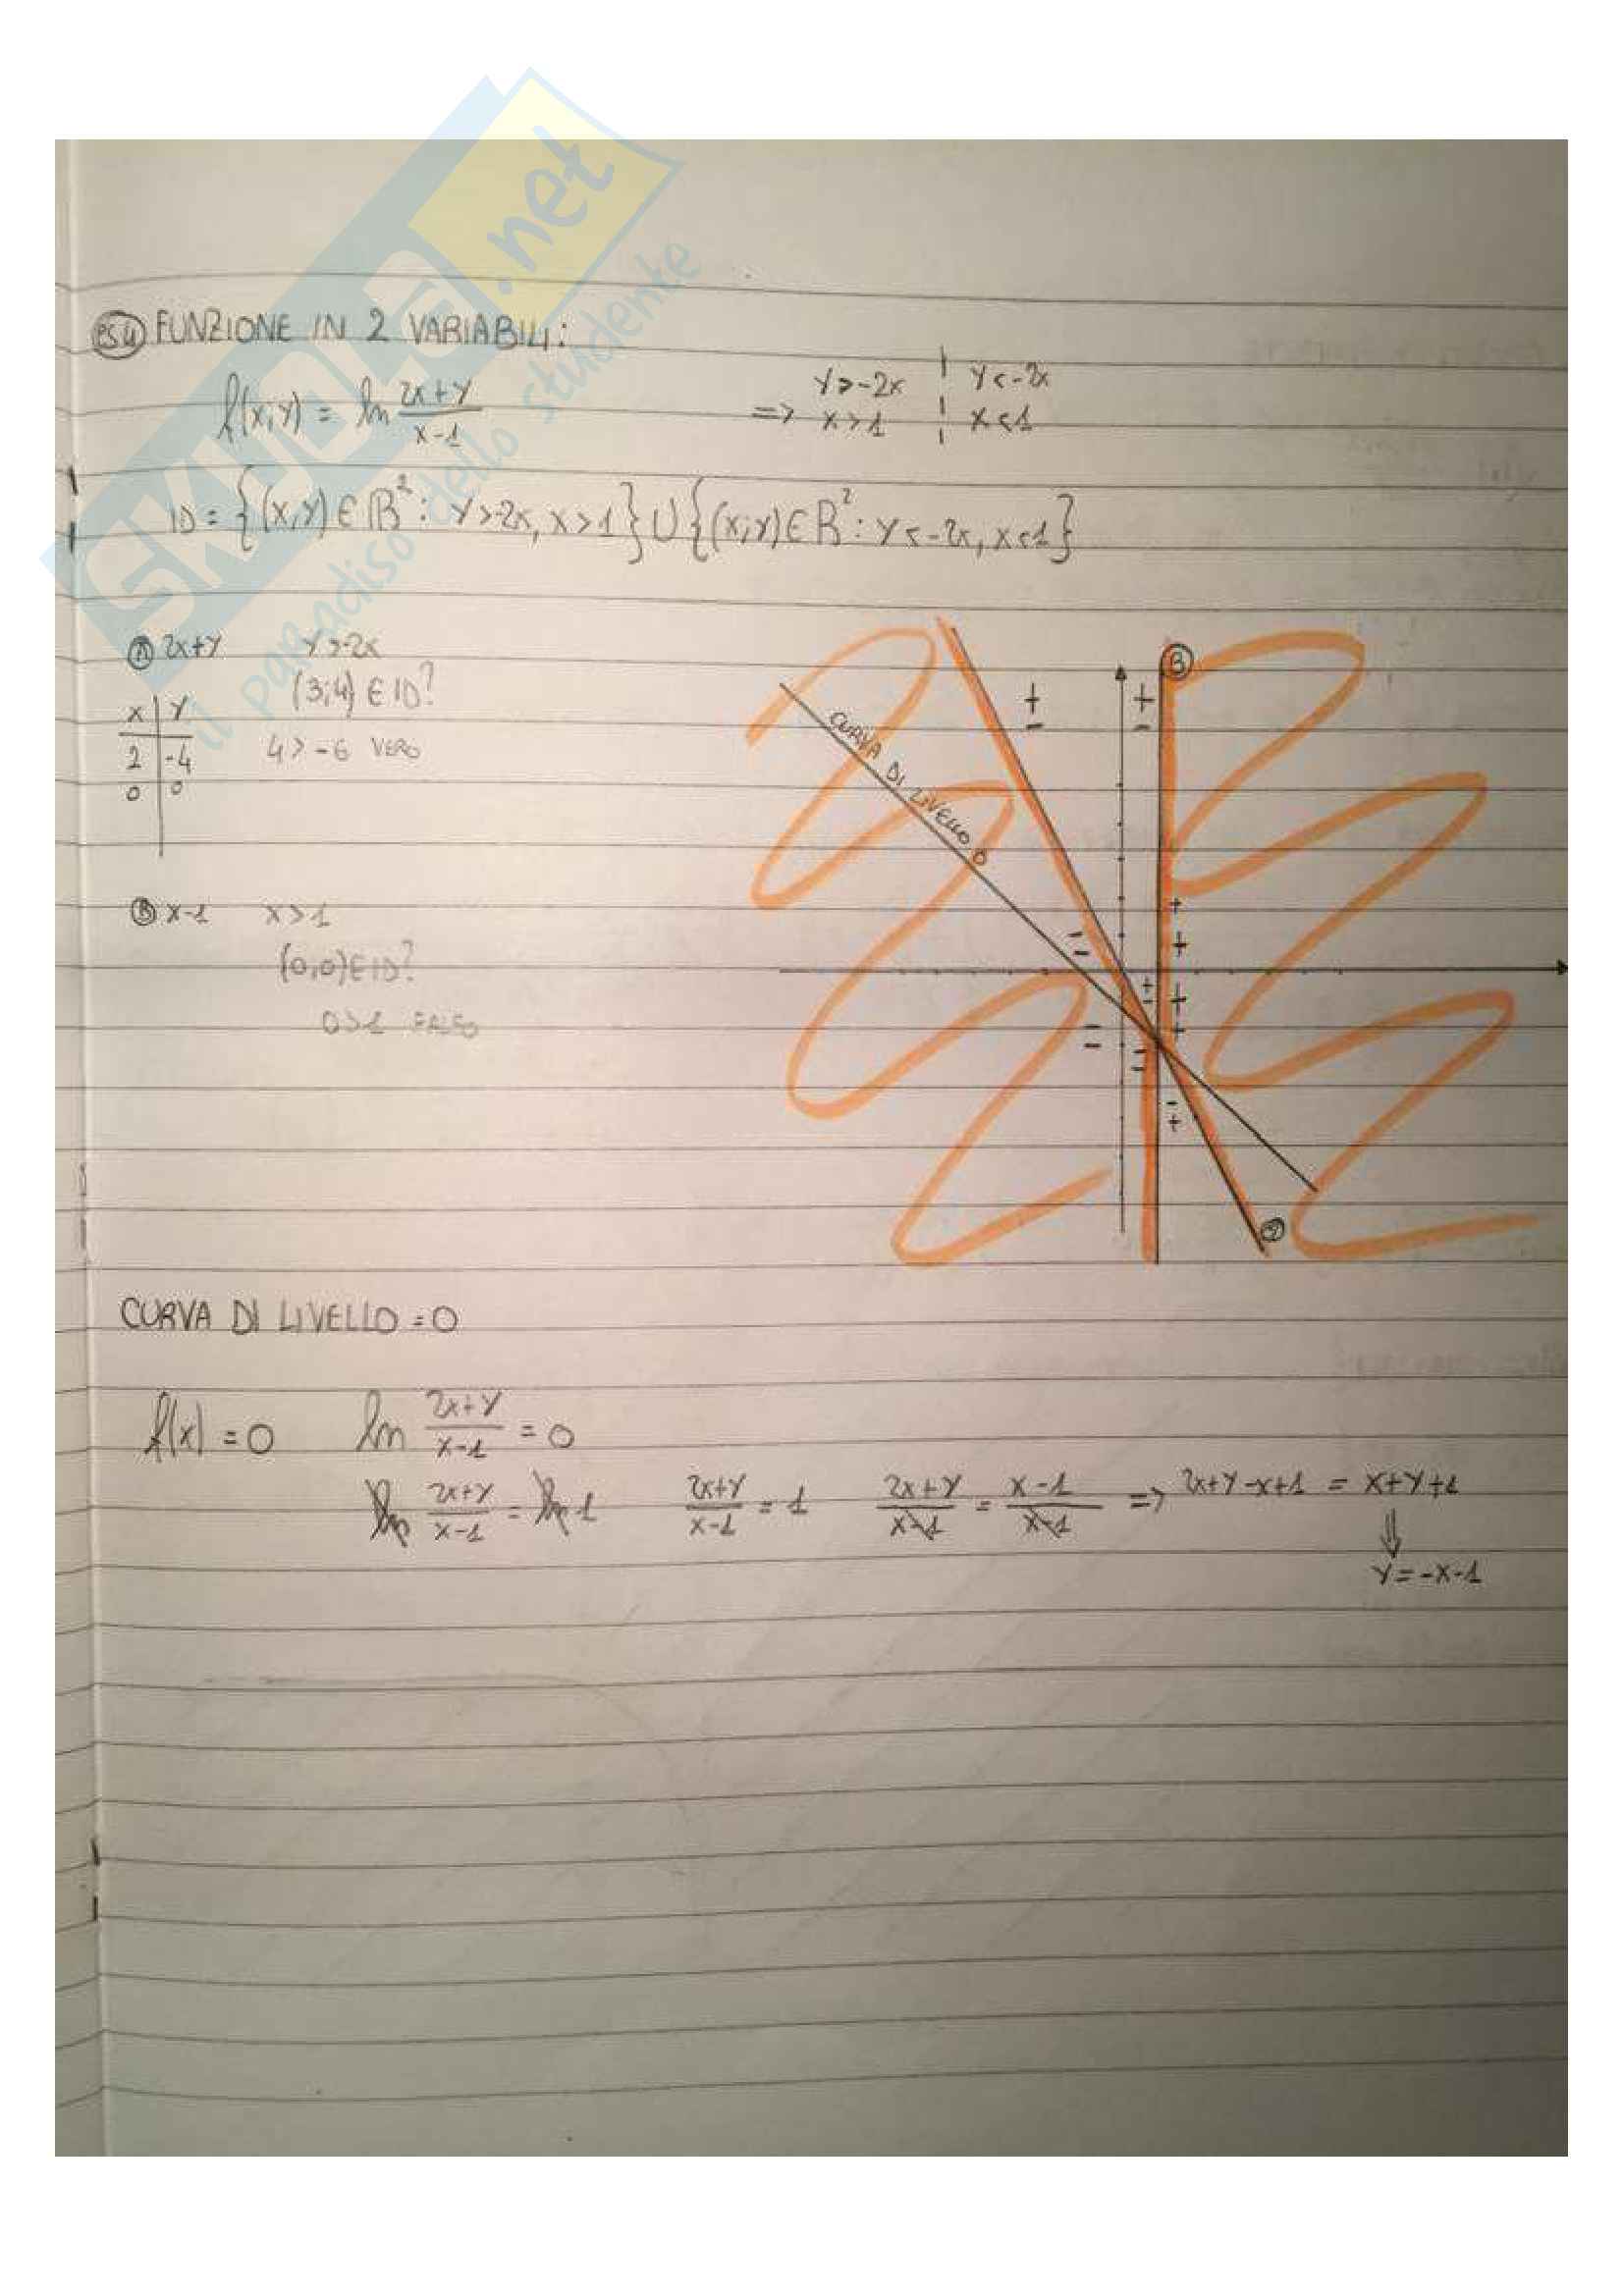 SKUOLA.net
il paradiso dello studente
ES 4 FUNZIONE IN 2 VARIABILI:
f(x;y) = ln (2x+y)/(x-1) => y>-2x ¦ y<-2x
x>1 ¦ x<1
ID = {(x,y)∈R²: y>-2x, x>1}∪{(x;y)∈R²: y<-2x, x<1}
Ⓐ 2x+y y>-2x
(3;4)∈ID?
x | y
2 | -4 4>-6 VERO
0 | 0
Ⓑ x-1 x>1
(0,0)∈ID?
0>1 FALSO
Ⓑ
+ +
- -
CURVA DI LIVELLO 0
+
- +
-
+ +
- - +
-
- -
-
+
CURVA DI LIVELLO = 0
f(x) = 0 ln (2x+y)/(x-1) = 0
ln (2x+y)/(x-1) = ln 1 (2x+y)/(x-1) = 1 (2x+y)/(x-1) = (x-1)/(x-1) => 2x+y-x+1 = x+y+1
⇓
y=-x-1